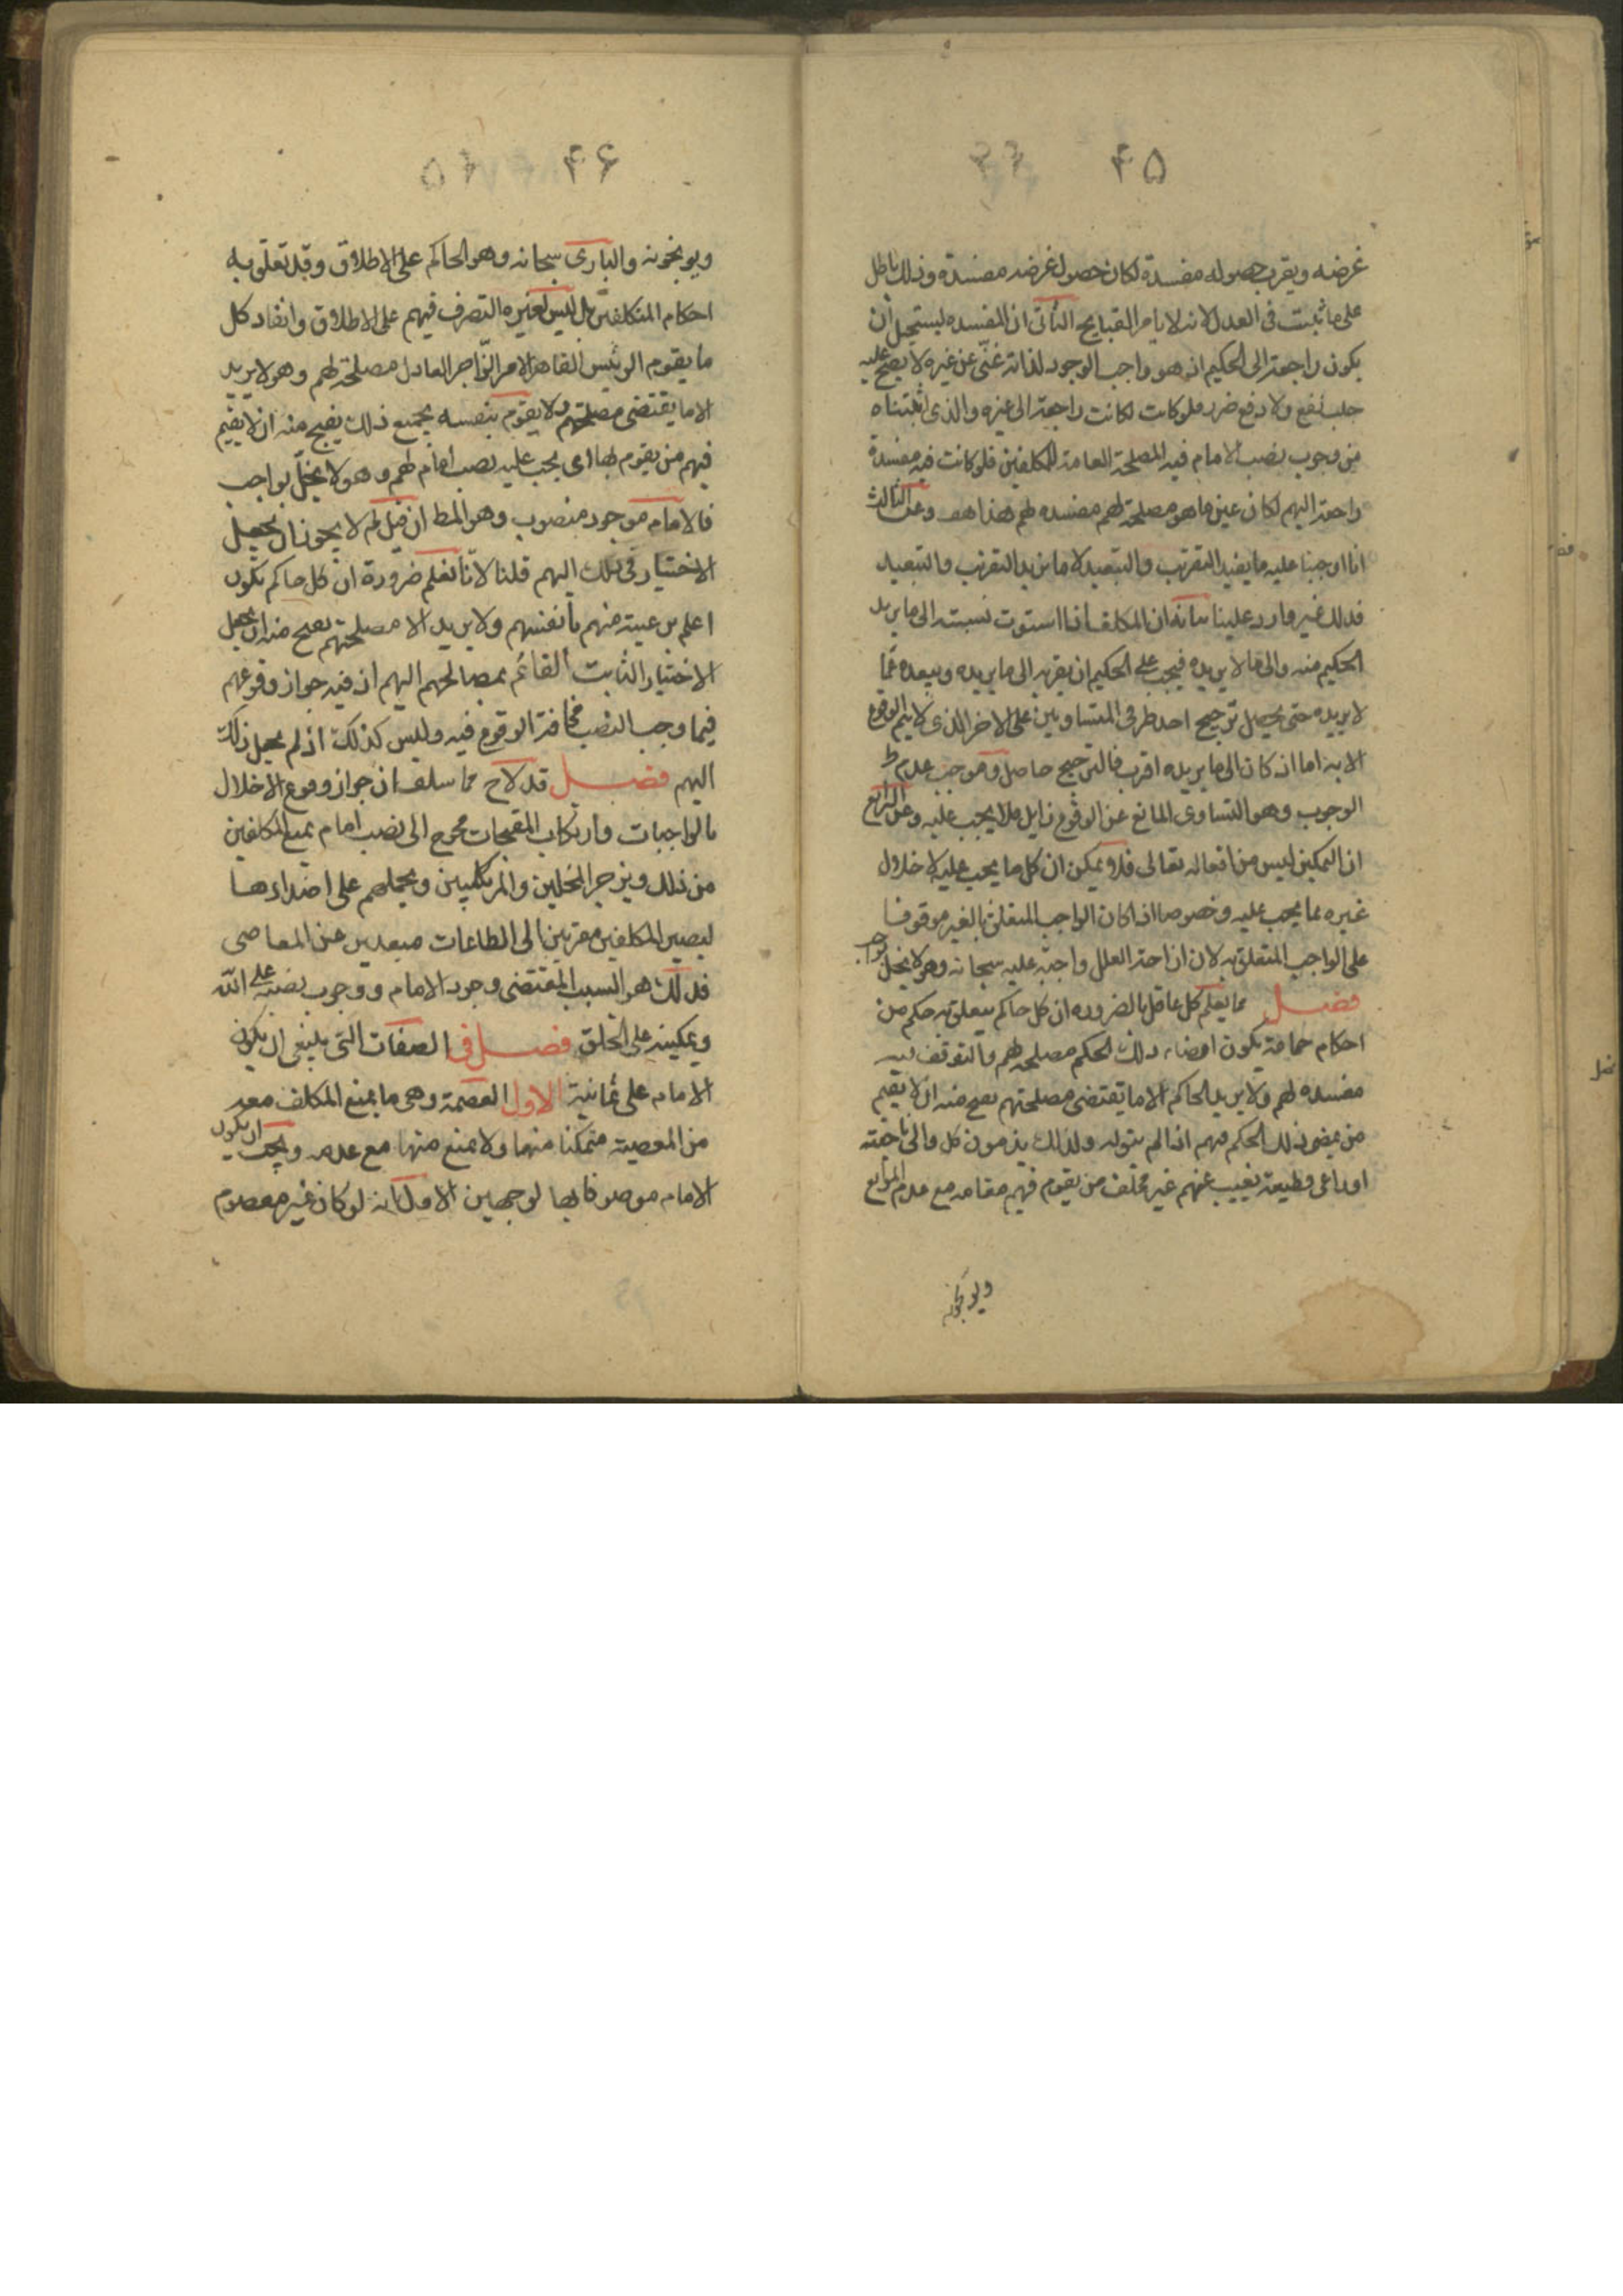 ۴۵
غرضه ويقرب حصوله مفسدة لكان حصول غرضه مفسدة وذلك باطل
على ما ثبت فى العدل لانه لا يامر القبايح الثانى ان المفسده يستحيل ان
يكون راجعة الى الحكيم اذ هو واجب الوجود لذاته غنى عن غيره لا يصح عليه
جلب نفع ولا دفع ضرر فلو كانت لكانت راجعة الى غيره والذى اثبتناه
من وجوب نصب الامام فيه المصلحة العامة للمكلفين فلو كانت فيه مفسدة
راجعة اليهم لكان عين ما هو مصلحة لهم مفسده لهم هذا هف وعن الثالث
انا اوجبنا عليه ما يفيد التقريب والتبعيد لا ما يزيد التقريب والتبعيد
فذلك غير وارد علينا بيانه ان المكلف اذا استوت نسبته الى ما يريد
الحكيم منه والى ما لا يريده فيجب على الحكيم ان يقربه الى ما يريده ويبعده عما
لا يريد حتى يحصل ترجيح احد طرفى المتساويين على الاخر الذى لا يتم الوقوع
الا به اما اذ كان الى ما يريده اقرب فالترجيح حاصل وموجب عدم
الوجوب وهو التساوى المانع عن الوقوع زايل فلا يجب عليه وعن الرابع
ان التمكين ليس من افعاله تعالى فلا ويمكن ان كل ما يجب عليه لاخلال
غيره بما يجب عليه وخصوصا اذا كان الواجب المتعلق بالغير موقوفا
على الواجب المتعلق به لان ازاحة العلل واجبة عليه سبحانه وهو لا يخل بواجب
فصل مما يعلم كل عاقل بالضروره ان كل حاكم يتعلق به حكم من
احكام جماعة يكون امضاء ذلك الحكم مصلحة لهم والتوقف فيه
مفسده لهم ولا يريد الحاكم الا ما تقتضى مصلحتهم يصح منه ان لا يقيم
من يمضى ذلك الحكم فيهم اذا لم يتوله ولذلك يذمون كل والى ناحية
او راعى قطيعة يغيب عنهم غير مخلف من يقوم فيهم مقامه مع عدم الموانع
ويوبخونه
۴۶
ويوبخونه والبارى سبحانه وهو الحاكم على الاطلاق وقد تعلق به
احكام المتكلفين بل ليس لغيره التصرف فيهم على الاطلاق وانفاد كل
ما يقوم الرئيس القاهر الامر الزاجر العادل مصلحة لهم وهو لا يريد
الا ما يقتضى مصلحتهم ولا يقوم بنفسه بجميع ذلك يقبح منه ان لا يقيم
فيهم من يقوم بها اى يجب عليه نصب امام لهم وهو لا يخل بواجب
فالامام موجود منصوب وهو المط ان قيل لم لا يجوز ان يجعل
الاختيار فى ذلك اليهم قلنا لانا نعلم ضرورة ان كل حاكم يكون
اعلم برعيته منهم بانفسهم ولا يريد الا مصلحتهم يصح منه ان يجعل
الاختيار الثابت القائم بمصالحهم اليهم اذ فيه جواز وقوعهم
فيما وجب النصب مخافة الوقوع فيه وليس كذلك اذ لم يجعل ذلك
اليهم فصل قد لاح مما سلف ان جواز وقوع الاخلال
بالواجبات وارتكاب المقبحات محوج الى نصب امام يمنع المكلفين
من ذلك ويزجر المخلين والمرتكبين ويحملهم على اضدادها
ليصير المكلفين مقربين الى الطاعات مبعدين عن المعاصى
فذلك هو السبب المقتضى وجود الامام ووجوب نصبه على الله
وتمكينه على الخلق فصل فى الصفات التى ينبغى ان يكون
الامام على ثمانية الاول العصمة وهى ما يمنع المكلف معه
من المعصية متمكنا منها ولا يمنع منها مع عدمه ويجب ان يكون
الامام موصوفا بها لوجهين الاول انه لو كان غير معصوم